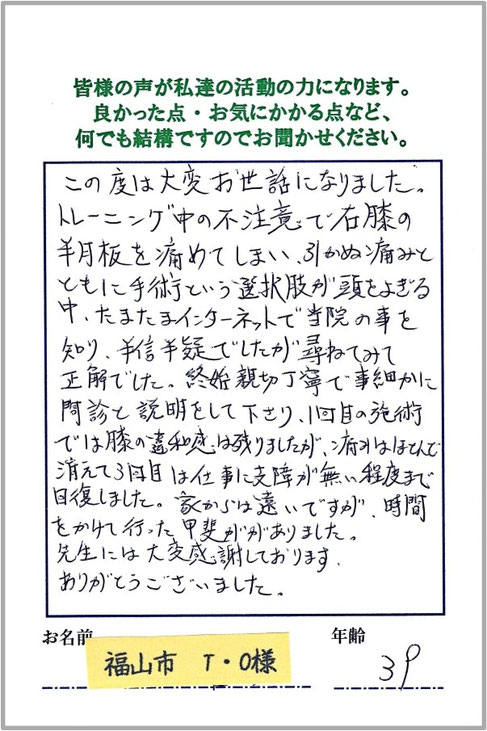 皆様の声が私達の活動の力になります。
良かった点・お気にかかる点など、
何でも結構ですのでお聞かせください。
この度は大変お世話になりました。
トレーニング中の不注意で右膝の
半月板を痛めてしまい、引かぬ痛みと
ともに手術という選択肢が頭をよぎる
中、たまたまインターネットで当院の事を
知り、半信半疑でしたが尋ねてみて
正解でした。終始親切丁寧で事細かに
問診と説明をして下さり、1回目の施術
では膝の違和感は残りましたが、痛みはほとんど
消えて3回目は仕事に支障が無い程度まで
回復しました。家からは遠いですが、時間
をかけて行った甲斐がありました。
先生には大変感謝しております。
ありがとうございました。
お名前
福山市 T・O様
年齢
39